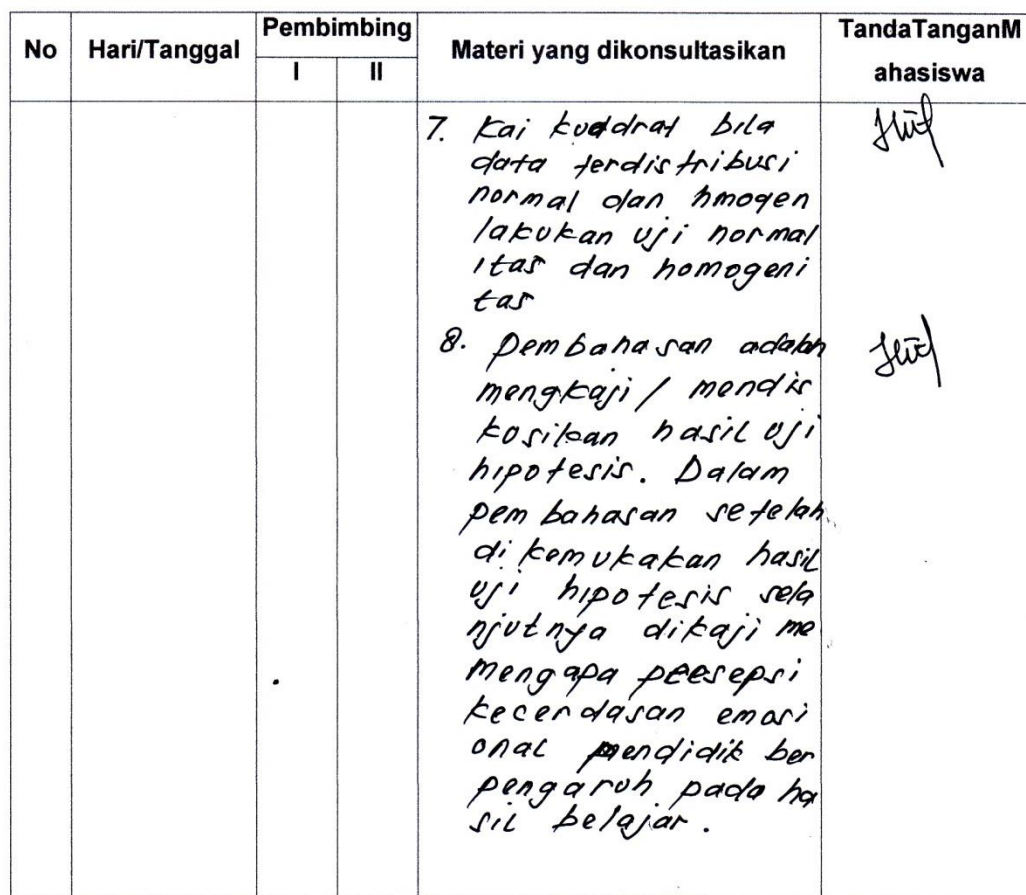 No Hari/Tanggal Pembimbing Materi yang dikonsultasikan TandaTanganM
I II ahasiswa
7. Kai kuadrat bila
data terdistribusi
normal dan hmogen
lakukan uji normal
itas dan homogeni
tas
8. Pembahasan adalah
mengkaji / mendis
kusikan hasil uji
hipotesis. Dalam
pembahasan setelah
dikemukakan hasil
uji hipotesis sela
njutnya dikaji me
mengapa peesepsi
kecerdasan emosi
onal pendidik ber
pengaruh pada ha
sil belajar.